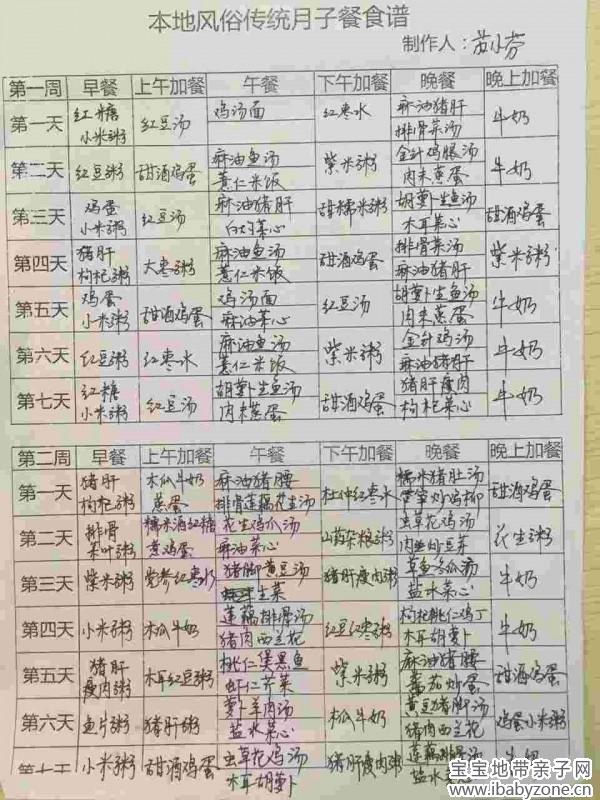 本地风俗传统月子餐食谱
制作人：苏小芬
第一周 早餐 上午加餐 午餐 下午加餐 晚餐 晚上加餐
第一天 红糖小米粥 红豆汤 鸡汤面 红枣水 麻油猪肝 排骨菜汤 牛奶
第二天 红豆粥 甜酒鸡蛋 麻油鱼汤 薏仁米饭 紫米粥 金针鸡腿汤 肉末蒸蛋 牛奶
第三天 鸡蛋小米粥 红豆汤 麻油猪肝 白灼菜心 甜糯米粥 胡萝卜生鱼汤 木耳菜心 甜酒鸡蛋
第四天 猪肝枸杞粥 大枣粥 麻油鱼汤 薏仁米饭 甜酒鸡蛋 排骨菜汤 麻油猪肝 紫米粥
第五天 鸡蛋小米粥 甜酒鸡蛋 鸡汤面 麻油菜心 红豆汤 胡萝卜生鱼汤 肉末蒸蛋 牛奶
第六天 红豆粥 红枣水 麻油鱼汤 薏仁米饭 紫米粥 金针鸡汤 麻油猪肝 牛奶
第七天 红糖小米粥 红豆汤 胡萝卜生鱼汤 肉末蒸蛋 甜酒鸡蛋 猪肝瘦肉 枸杞菜心 牛奶
第二周 早餐 上午加餐 午餐 下午加餐 晚餐 晚上加餐
第一天 猪肝枸杞粥 木瓜牛奶蒸蛋 麻油猪腰 排骨莲藕花生汤 杜仲红枣水 糯米猪肚汤 炒鸡柳 甜酒鸡蛋
第二天 排骨菜叶粥 糯米酒红糖煮鸡蛋 花生鸡爪汤 麻油菜心 山药杂粮粥 虫草花鸡汤 肉 炒豆芽 花生粥
第三天 紫米粥 党参红枣水 猪脚黄豆汤 生菜 猪肝瘦肉粥 草鱼冬瓜汤 盐水菜心 牛奶
第四天 小米粥 木瓜牛奶 莲藕排骨汤 猪肉西兰花 红豆红枣粥 枸杞桃仁鸡丁 木耳胡萝卜 牛奶
第五天 猪肝瘦肉粥 木耳红豆粥 桃仁煲黑鱼 虾仁芹菜 紫米粥 麻油猪腰 蕃茄炒蛋 甜酒鸡蛋
第六天 鱼片粥 猪肝粥 萝卜羊肉汤 盐水菜心 木瓜牛奶 黄豆猪脚汤 猪肉西兰花 鸡蛋小米粥
第七天 小米粥 甜酒鸡蛋 虫草花鸡汤 木耳胡萝卜 猪肝瘦肉粥 莲藕排骨汤 盐水菜心 牛奶
宝宝地带亲子网
www.ibabyzone.cn